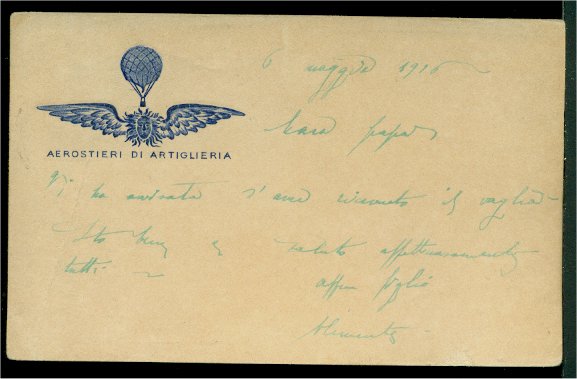 6 maggio 1916
AEROSTIERI DI ARTIGLIERIA
Caro papà
Ti ho avvisato d'aver ricevuto il vaglia
Sto bene e saluto affettuosamente
tutti
aff. figlio